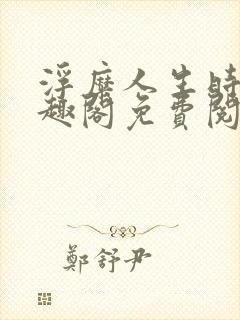 浮靡人生時
趣閣免費閱
鄭舒尹